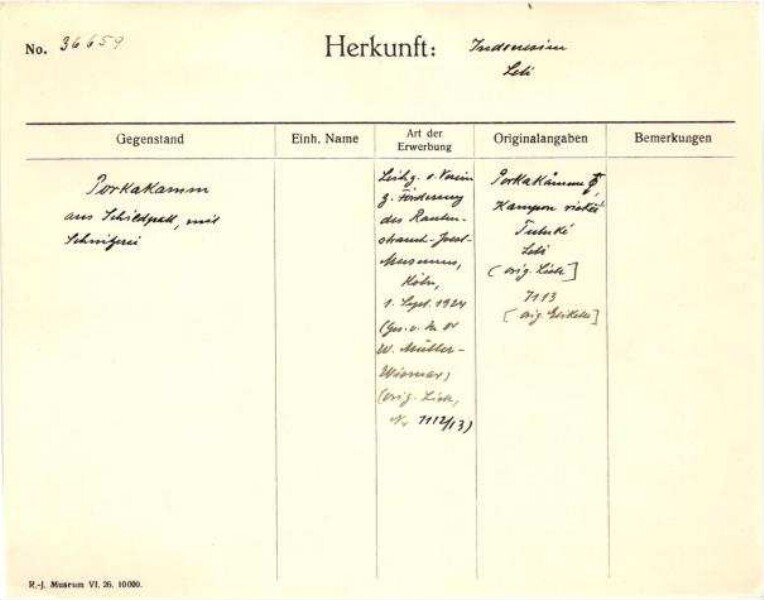 No. 36659
Herkunft: Indonesien
Leti
Gegenstand
Einh. Name
Art der
Erwerbung
Originalangaben
Bemerkungen
Porkakamm
aus Schildpatt, mit
Schnitzerei
Leihg. v. Verein
z. Förderung
des Rauten-
strauch-Joest-
Museums,
Köln,
1. Sept. 1924
(Ges. v.
W. Müller-
Wismar)
(orig. Liste,
Nr 7112/13)
Porkakämme
Kampon
Tutuké
Leti
(orig. Liste]
7113
[orig. Etikette]
R.-J. Museum VI. 26. 10000.